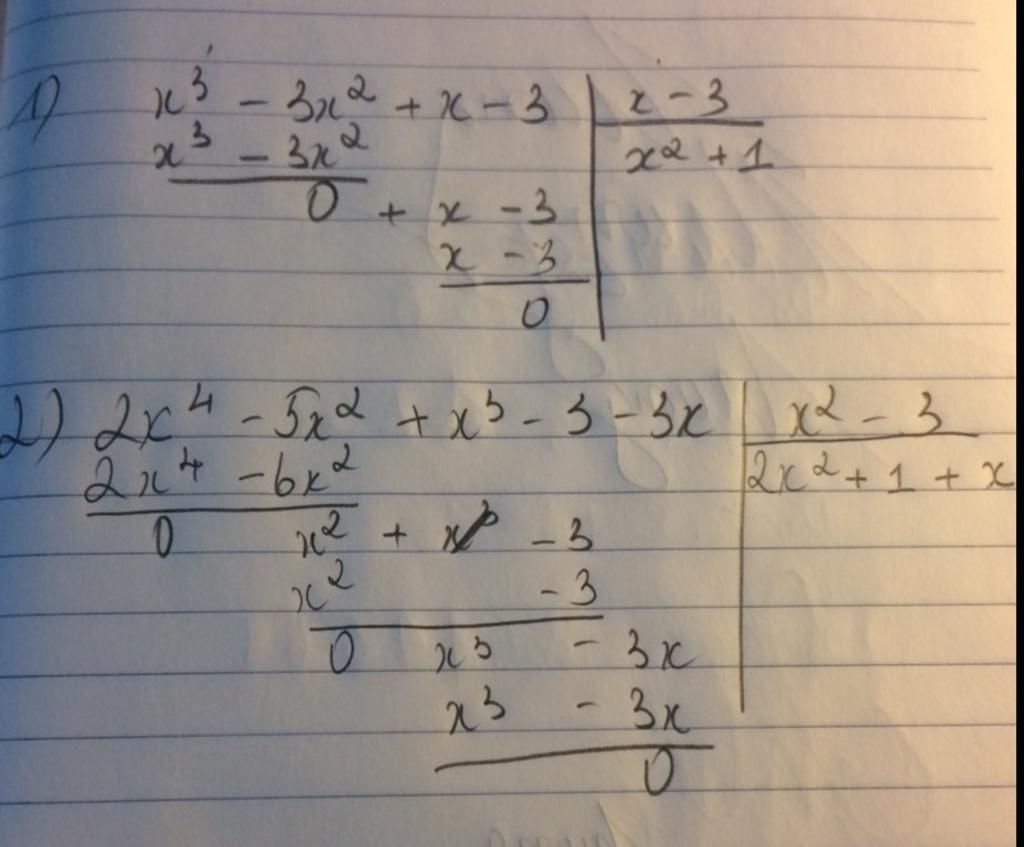 1) x³ - 3x² + x - 3 | x - 3
x³ - 3x² | x² + 1
0 + x - 3
x - 3
0
2) 2x⁴ - 5x² + x³ - 3 - 3x | x² - 3
2x⁴ - 6x² | 2x² + 1 + x
0 x² + x³ - 3
x² - 3
0 x³ - 3x
x³ - 3x
0